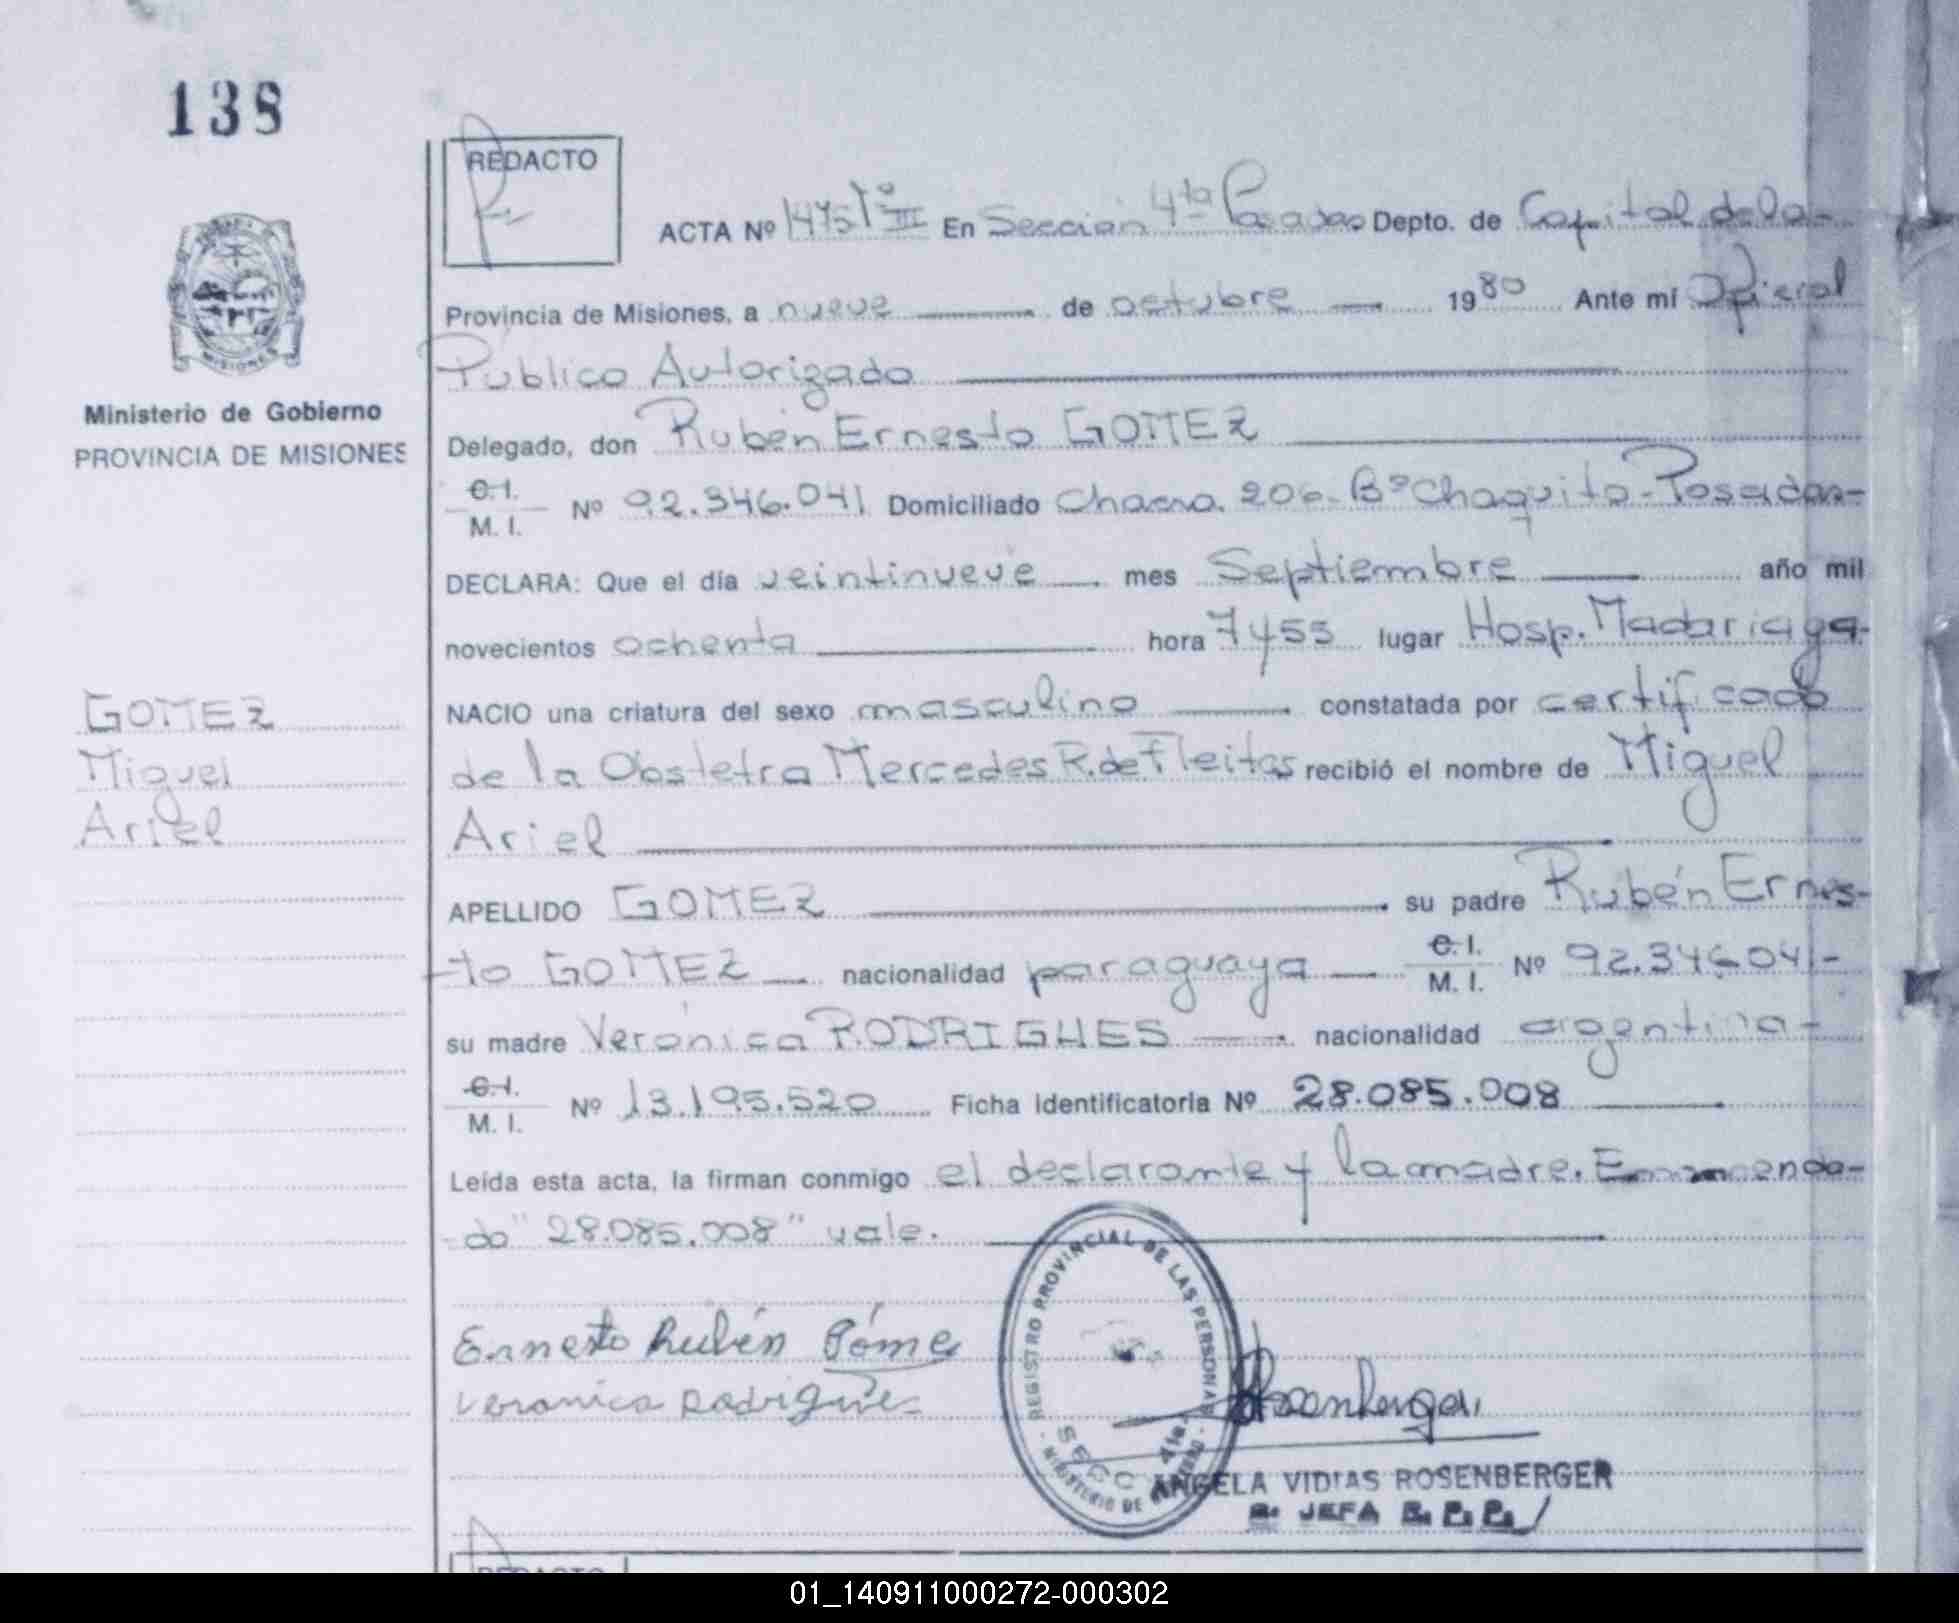 138
REDACTO
ACTA Nº 1475 Tº III En Sección 4ta Posadas Depto. de Capital de la-
Provincia de Misiones, a nueve de octubre 1980 Ante mí Oficial
Público Autorizado
Ministerio de Gobierno
PROVINCIA DE MISIONES
Delegado, don Rubén Ernesto GOMEZ
C.I. M. I. Nº 92.346.041 Domiciliado Chacra 206-Bº Chaquito-Posadas-
DECLARA: Que el día veintinueve mes Septiembre año mil
novecientos ochenta hora 7 y 55 lugar Hosp. Madariaga-
GOMEZ
Miguel
Ariel
NACIO una criatura del sexo masculino constatada por certificado
de la Obstetra Mercedes R. de Fleitas recibió el nombre de Miguel
Ariel
APELLIDO GOMEZ su padre Rubén Ernes-
to GOMEZ nacionalidad paraguaya C.I. M. I. Nº 92.346.041-
su madre Verónica RODRIGUES nacionalidad argentina-
C.I. M. I. Nº 13.195.520 Ficha Identificatoria Nº 28.085.008
Leída esta acta, la firman conmigo el declarante y la madre. Enmenda-
do "28.085.008" vale.
Ernesto Rubén Góme
Veronica Rodrigues
REGISTRO PROVINCIAL DE LAS PERSONAS
SECC 4ta.
MINISTERIO DE GOBIERNO
Rosenberger
ANGELA VIDIAS ROSENBERGER
JEFA
REDACTO
01_140911000272-000302